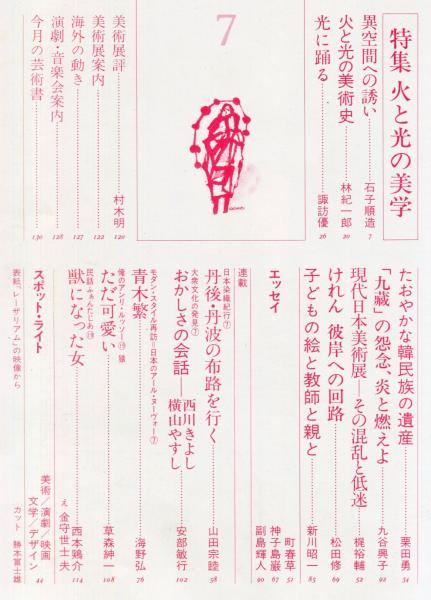 特集 火と光の美学
異空間への誘い……石子順造 7
火と光の美術史……林紀一郎 20
光に踊る……諏訪優 26
7
美術展評……村木明 120
美術展案内……122
海外の動き……127
演劇・音楽会案内……128
今月の芸術書……130
たおやかな韓民族の遺産……栗田勇 34
「九蔵」の怨念、炎と燃えよ……九谷興子 92
現代日本美術展―その混乱と低迷……梶裕輔 52
けれん 彼岸への回路……松田修 69
子どもの絵と教師と親と……新川昭一 85
エッセイ
町春草 51
神子島巌 67
副島輝人 90
連載
日本染織紀行⑦
丹後・丹波の布路を行く……山田宗睦 58
大衆文化の発見⑦
おかしさの会話―西川きよし 横山やすし……安部敏行 102
モダン・スタイル再訪=日本のアール・ヌーヴォー⑦
青木繁……海野弘 76
俺のアンリ・ルッソー⑲ 猿
ただ可愛い……草森紳一 108
民話ふぁんたじあ⑲
獣になった女……西本鶏介 114
え 金守世士夫
スポット・ライト……美術/演劇/映画 文学/デザイン 44
表紙「レーザリアム」の映像から
カット 勝本冨士雄